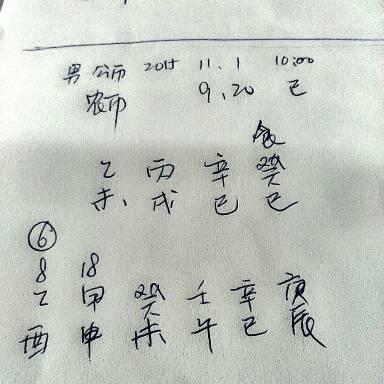 男 公历 2015 11.1 10:00
农历 9.20 巳
食
乙 丙 辛 癸
未 戌 巳 巳
⑥
8 18
乙 甲 癸 壬 辛 庚
酉 申 未 午 巳 辰